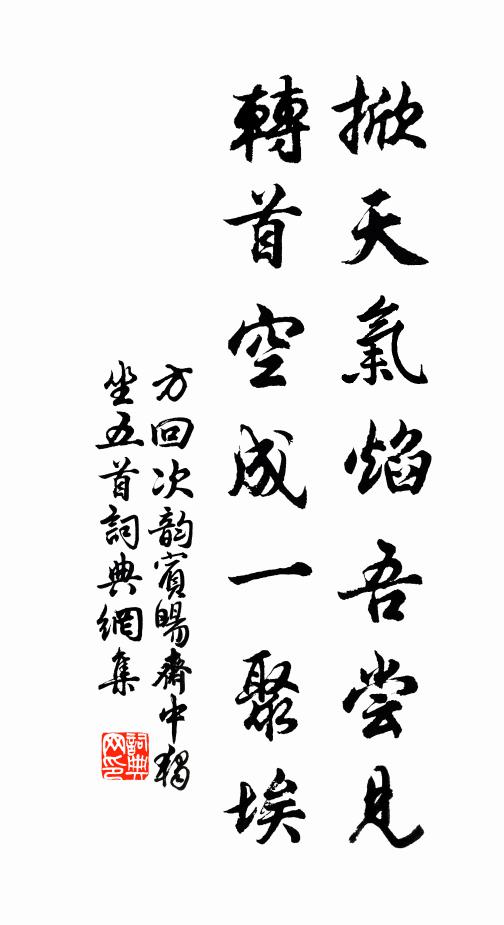 掀天氣焰吾嘗見
轉首空成一聚埃
方回次韵賓暘齋中獨
坐五首詞典網集
詞典
网印